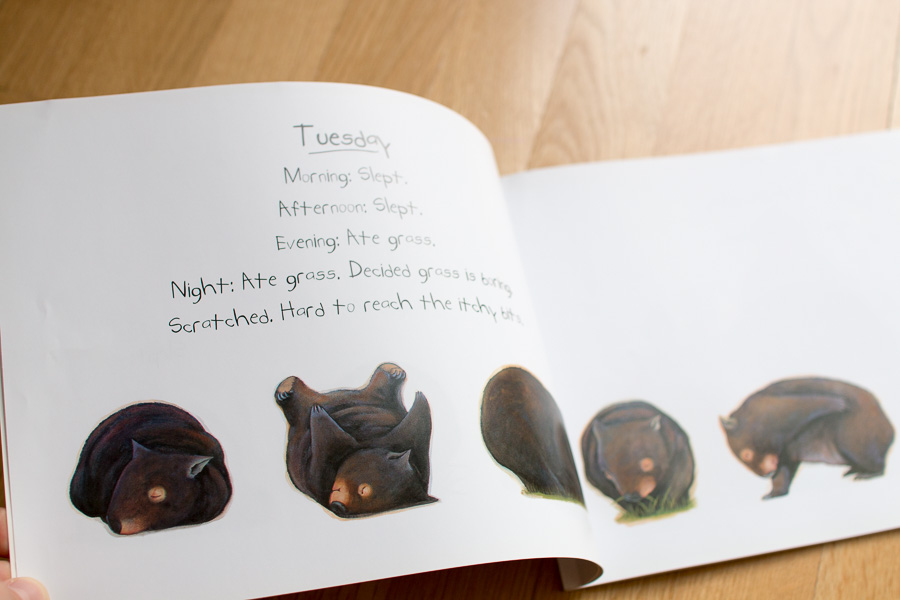 Tuesday
Morning: Slept.
Afternoon: Slept.
Evening: Ate grass.
Night: Ate grass. Decided grass is boring.
Scratched. Hard to reach the itchy bits.